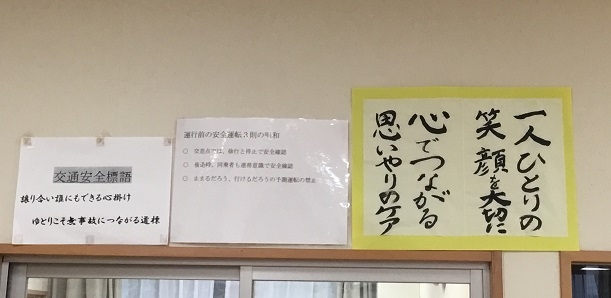 交通安全標語
譲り合い誰にもできる心掛け
ゆとりこそ無事故につながる道標
運行前の安全運転3則の唱和
○ 交差点では、徐行と停止で安全確認
○ 後退時、同乗者も連帯意識で安全確認
○ 止まるだろう、行けるだろうの予測運転の禁止
一人ひとりの
笑顔を大切に
心でつながる
思いやりのケア